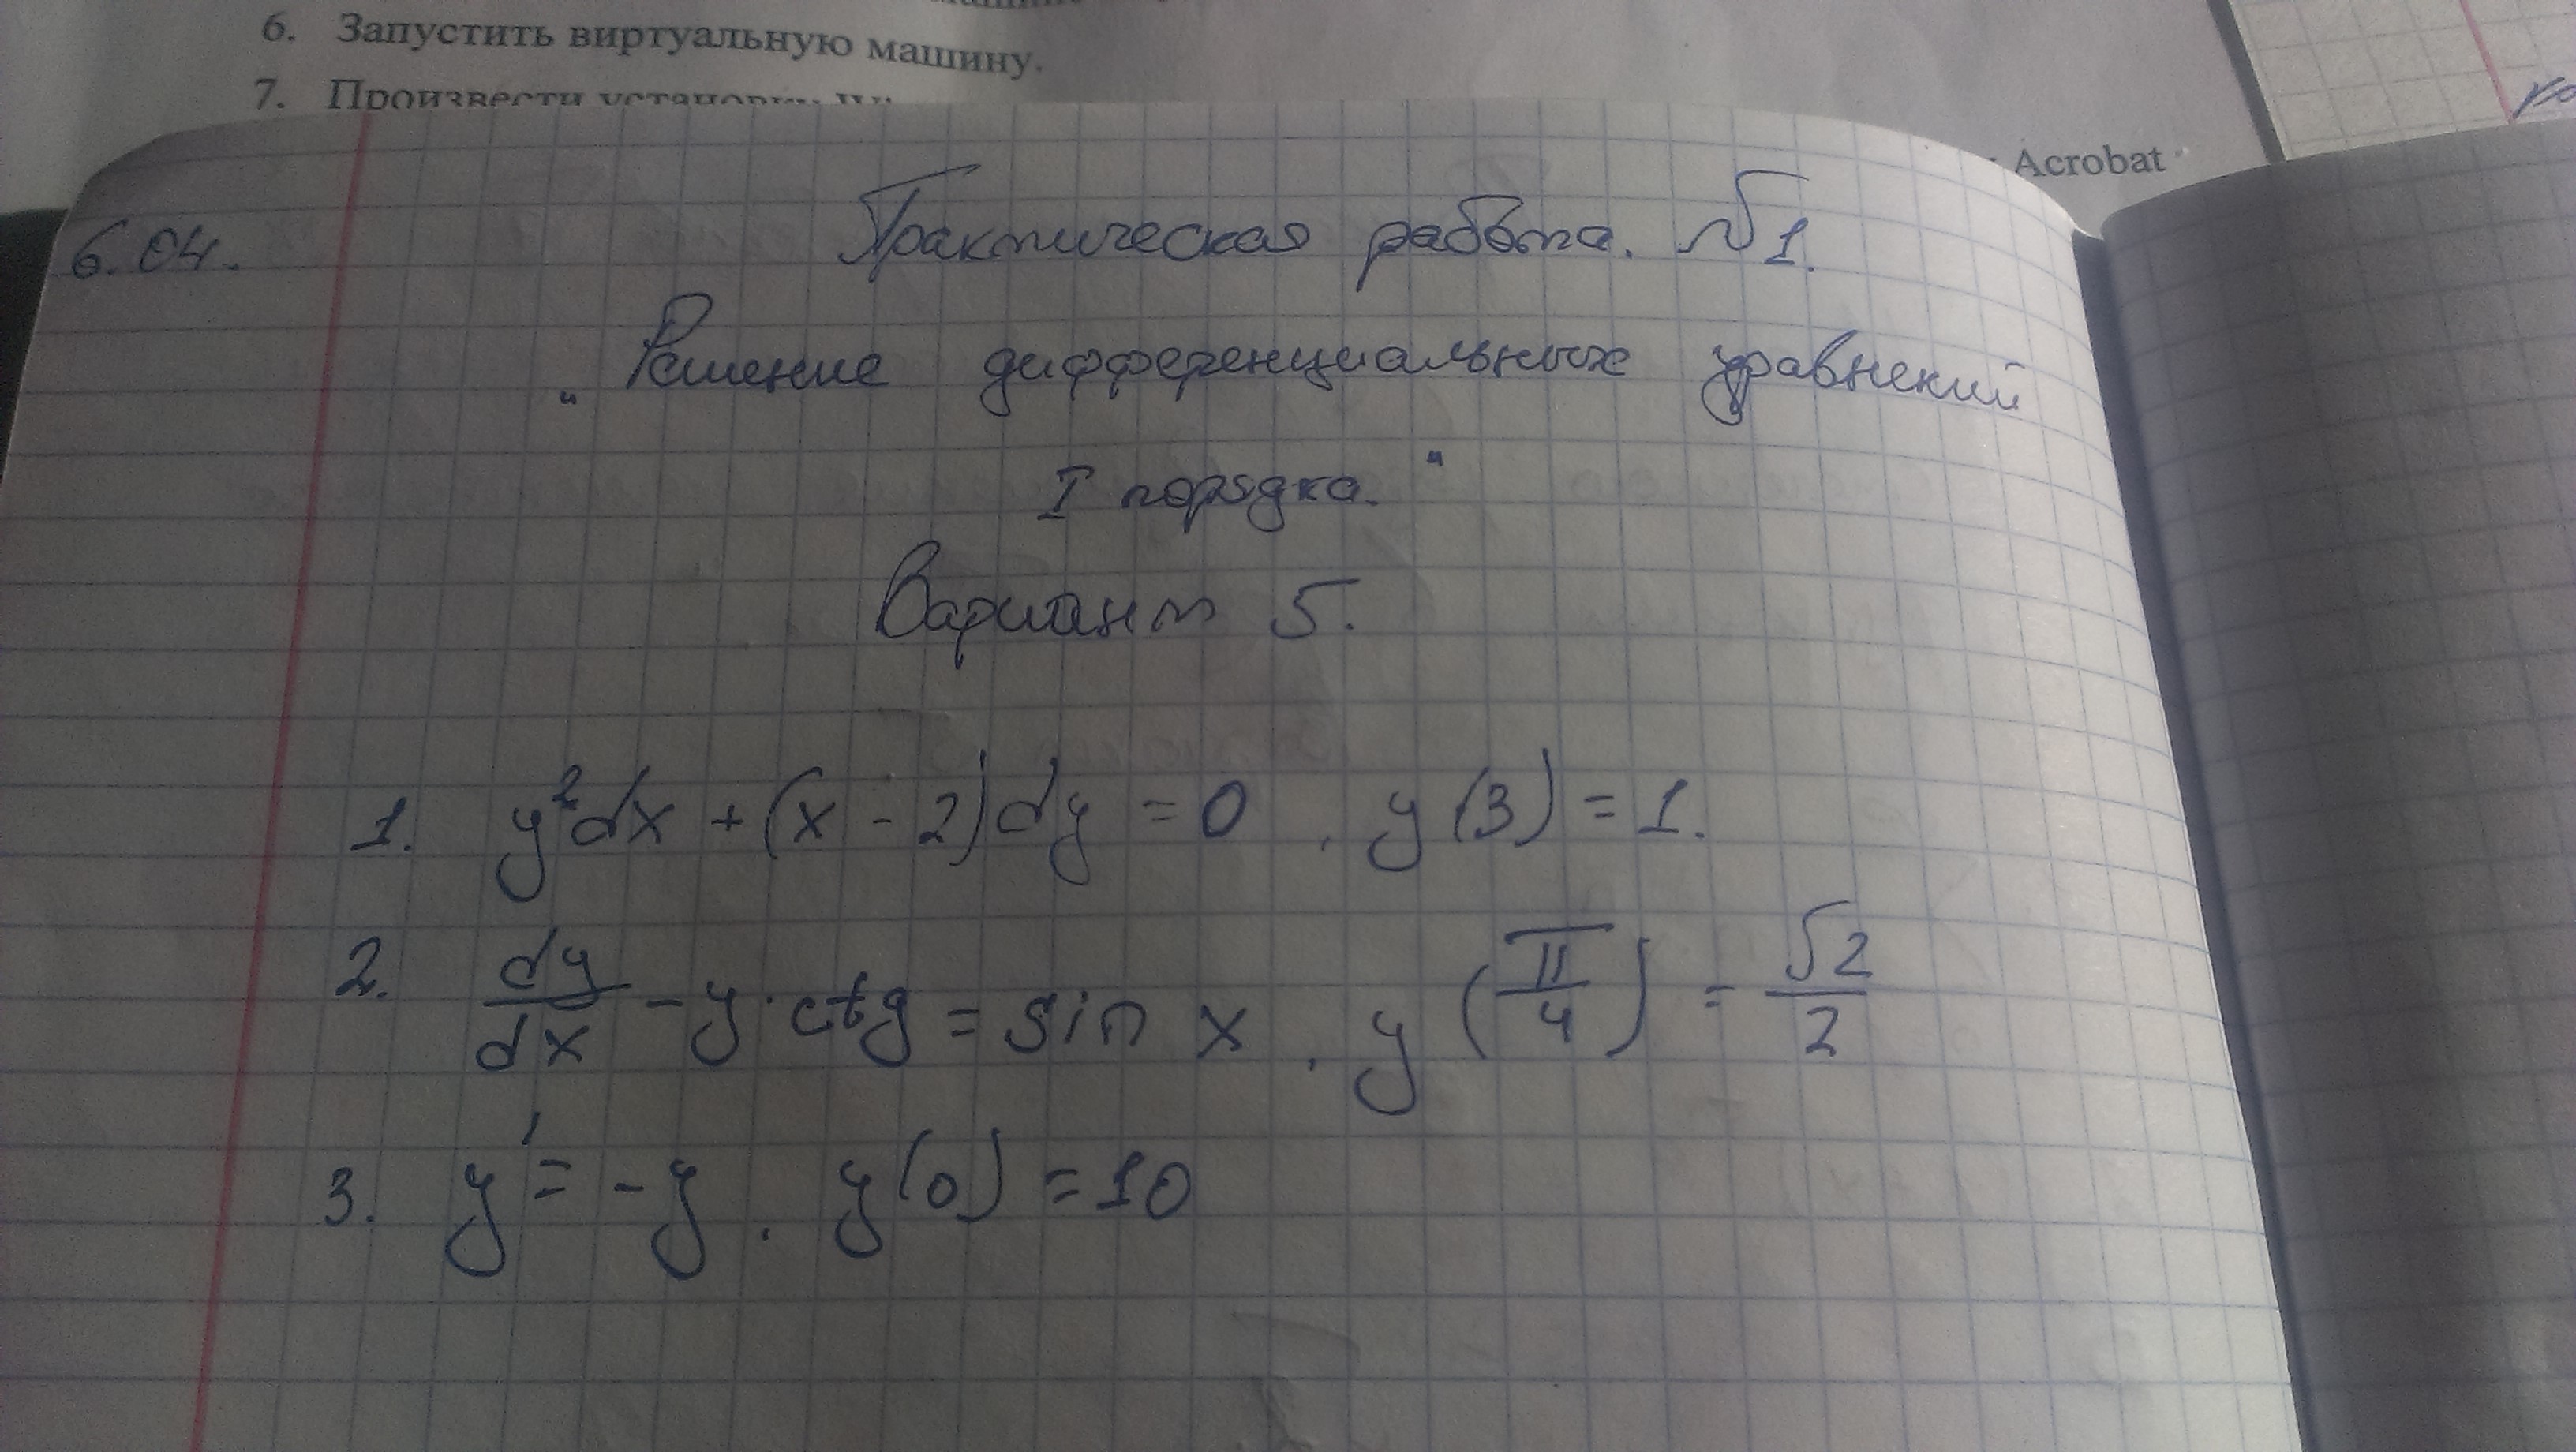 6. Запустить виртуальную машину.
7. Произвести установку
Acrobat
6.04.
Практическая работа. №1.
„Решение дифференциальных уравнений
I порядка."
Вариант 5.
1. y²dx + (x - 2)dy = 0, y(3) = 1.
2. dy/dx - y · ctg = sin x, y(π/4) = √2/2
3. y' = -y, y(0) = 10